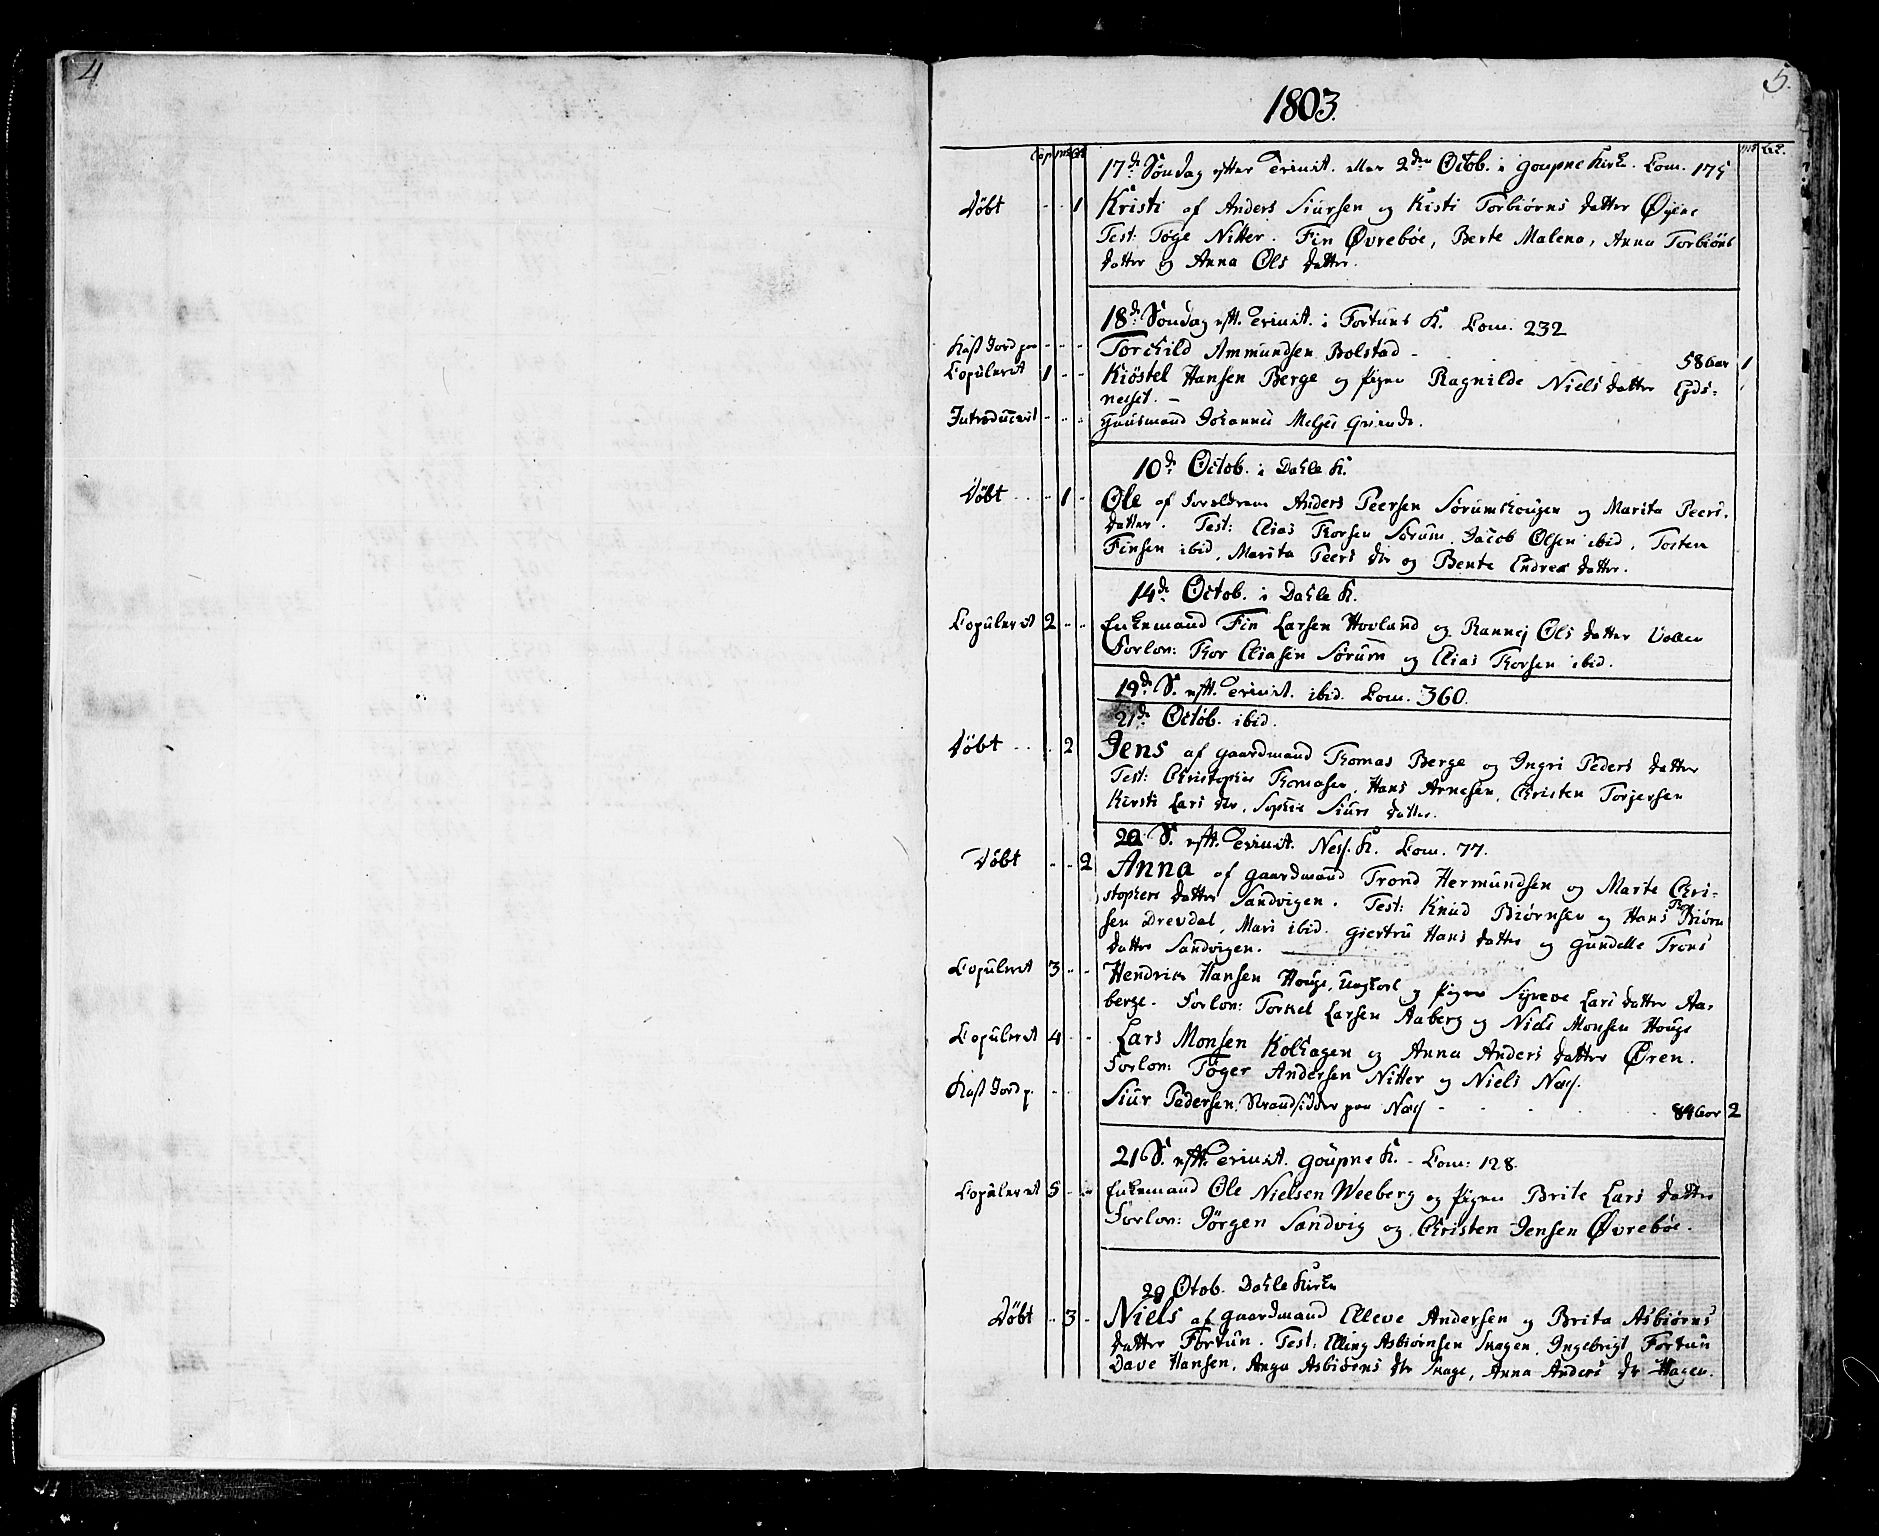 4
5.
1803.
Cop. ms. Qk. ms. Qk.
17de Søndag efter Trinit. eller 2den Octob. i Goupne Kirke. Com. 175
Døbt - - 1 Kristi af Anders Siursen og Kisti Torbiørns datter Øyene
Test: Tøge Nitter. Fin Øvrebøe, Berte Malena, Anna Torbiörs
datter og Anna Ols datter.
18de Søndag eft. Trinit. i Fortuns K. Com. 232
Kast Jord paa - - - Torchild Ammundsen Bolstad - 58 aar 1
Copuleret 1 - - Kiöstel Hansen Berge og Pigen Ragnilde Niels datter Eids-
nesset. -
Introduceret - - - Huusmand Johannes Melges Qvinde.
10de Octob. i Dahle K.
Døbt - 1 - Ole af Foreldrene Anders Peersen Sørumshougen og Marita Peers-
datter. Test: Elias Thorsen Sørum, Jacob Olsen ibid, Tosten
Finsen ibid, Marita Peers dtr og Bente Endres datter.
14de Octob. i Dahle K.
Copuleret 2 - - Enkemand Fin Larsen Hovland og Rannej Ols datter Vollen
Forlov: Thor Eliasen Sørum og Elias Thorsen ibid.
19de S. eft. Trinit. ibid. Com. 360.
21de Octob. ibid.
Døbt - 2 Jens af Gaardmand Thomas Berge og Ingri Peders datter
Test: Christopher Thomasen, Hans Arnesen, Christen Torjersen
Kirsti Lars dtr, Sophie Siurs datter.
20 S. eft. Trinit. Ness. K. Com. 77.
Døbt - - 2 Anna af Gaardmand Trond Hermundsen og Marite Chri-
stophers datter Sandvigen. Test: Knud Biørnsen og Hans Biørn
sen Drevdal, Mari ibid. Giertru Hans datter og Gundelle Trons
datter Sandvigen.
Copuleret 3 - - Hendrik Hansen Houge, Ungkarl og Pigen Syneve Lars datter Aa-
berge. Forlov: Torkel Larsen Aaberg og Niels Monsen Houge
Copuleret 4 - - Lars Monsen Kolhagen og Anna Anders datter Øren.
Forlov: Tøger Andersen Nitter og Niels Næss.
Kast Jord p. - - Siur Pedersen, Strandsidder paa Næss - 84 aar 2
21 S. eft. Trinit. Goupne K. - Com: 128.
Copuleret 5 - - Enkemand Ole Nielsen Weeberg og Pigen Brite Lars datter
Forlov: Jørgen Sandvig og Christen Jensen Øvrebøe.
29 Otob. Dahle Kirke
Døbt - 3 - Niels af Gaardmand Elleve Andersen og Brita Asbiørns
datter Fortun. Test: Elling Asbiørnsen Skagen, Ingebrigt Fortun
Dave Hansen, Anga Asbiørns dtr Skage, Anna Anders dr Hagen.